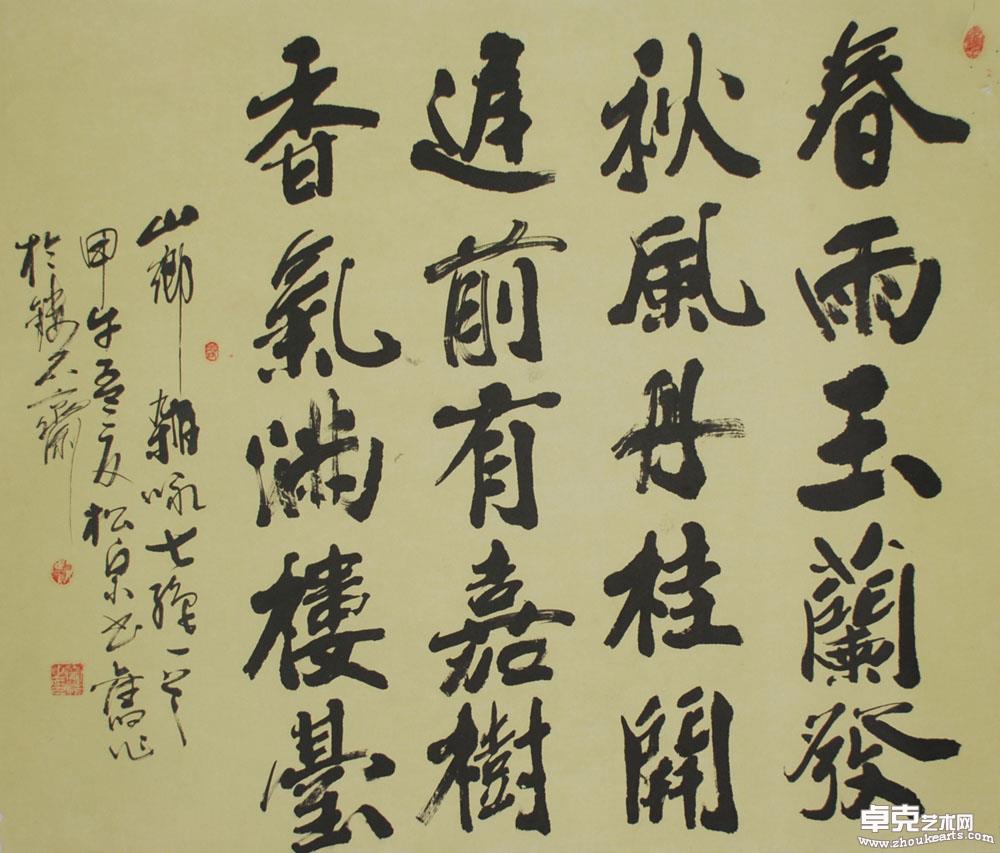 春雨玉蘭發
秋風丹桂開
遲前有嘉樹
香氣滿樓臺
山鄉雜咏七律一首
甲午孟夏松泉书舊作
於鏤石齋
卓克艺术网
www.zhoukearts.com